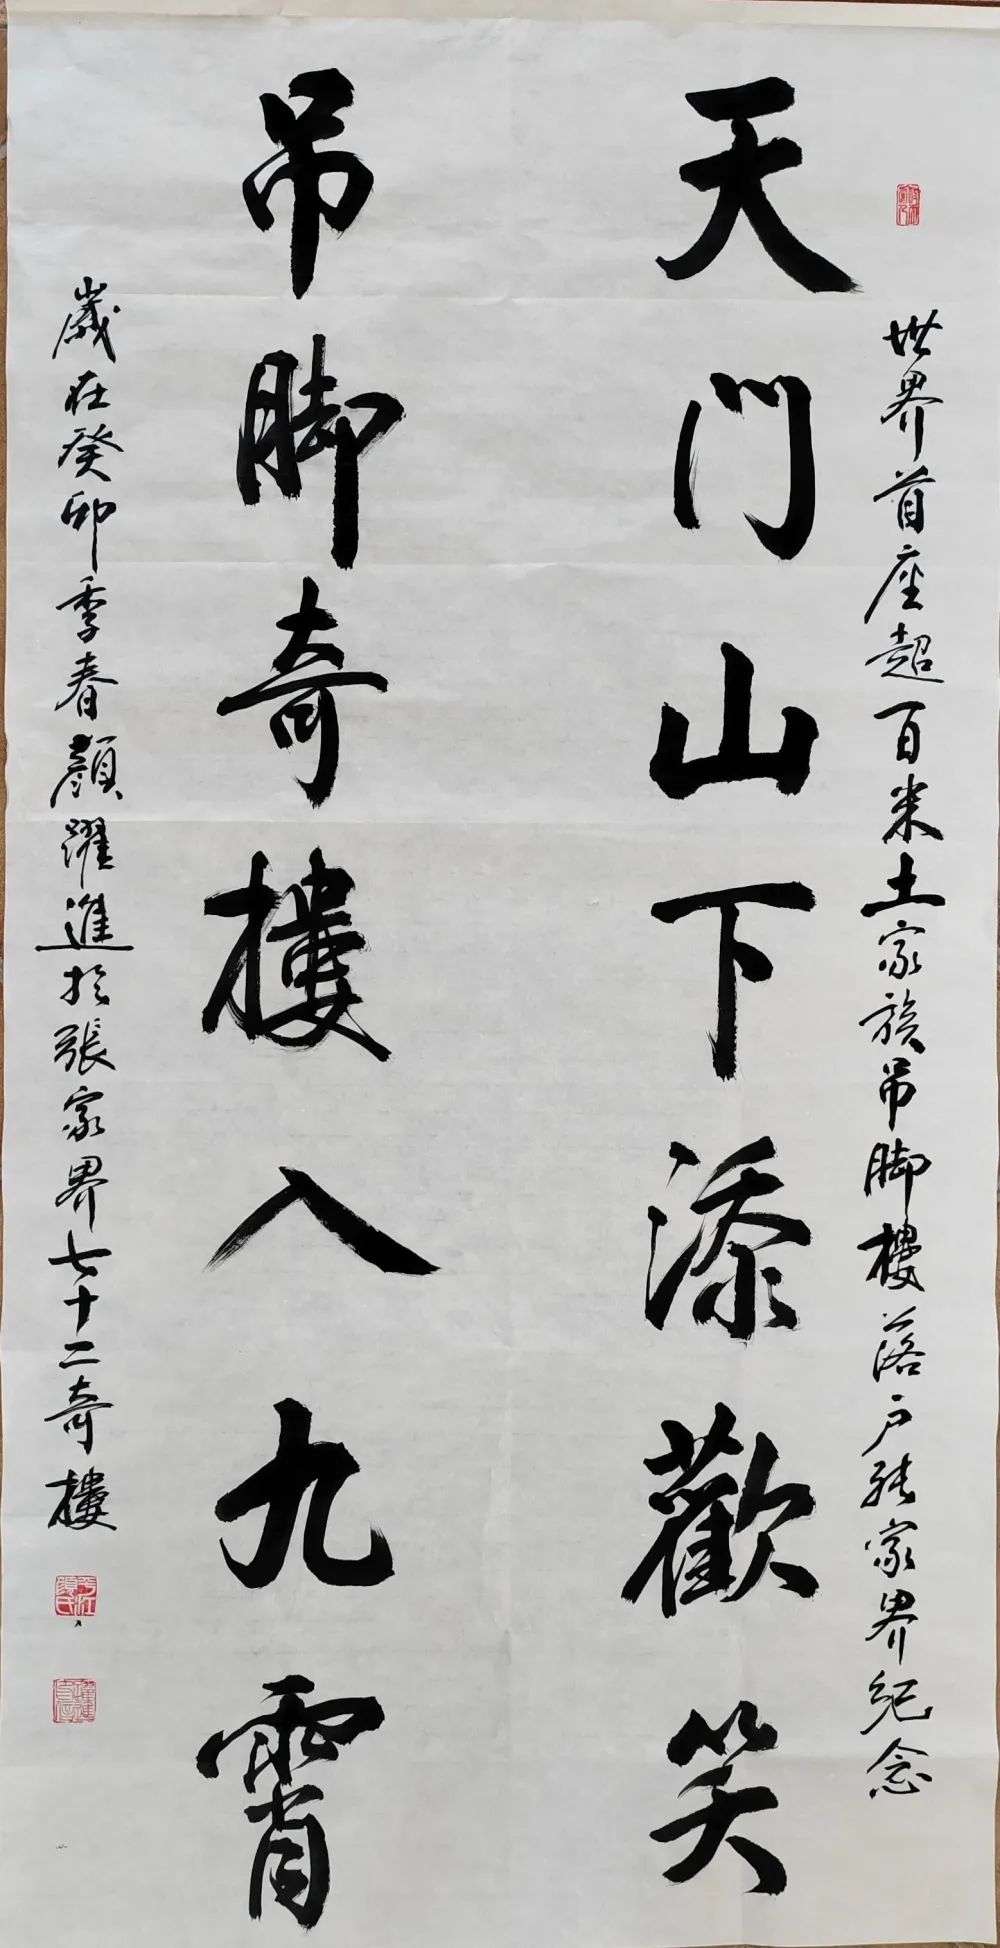 世界首座超百米土家族吊脚樓落户张家界纪念
天门山下添歡笑
吊脚奇樓入九霄
歲在癸卯季春顏躍進於張家界七十二奇樓